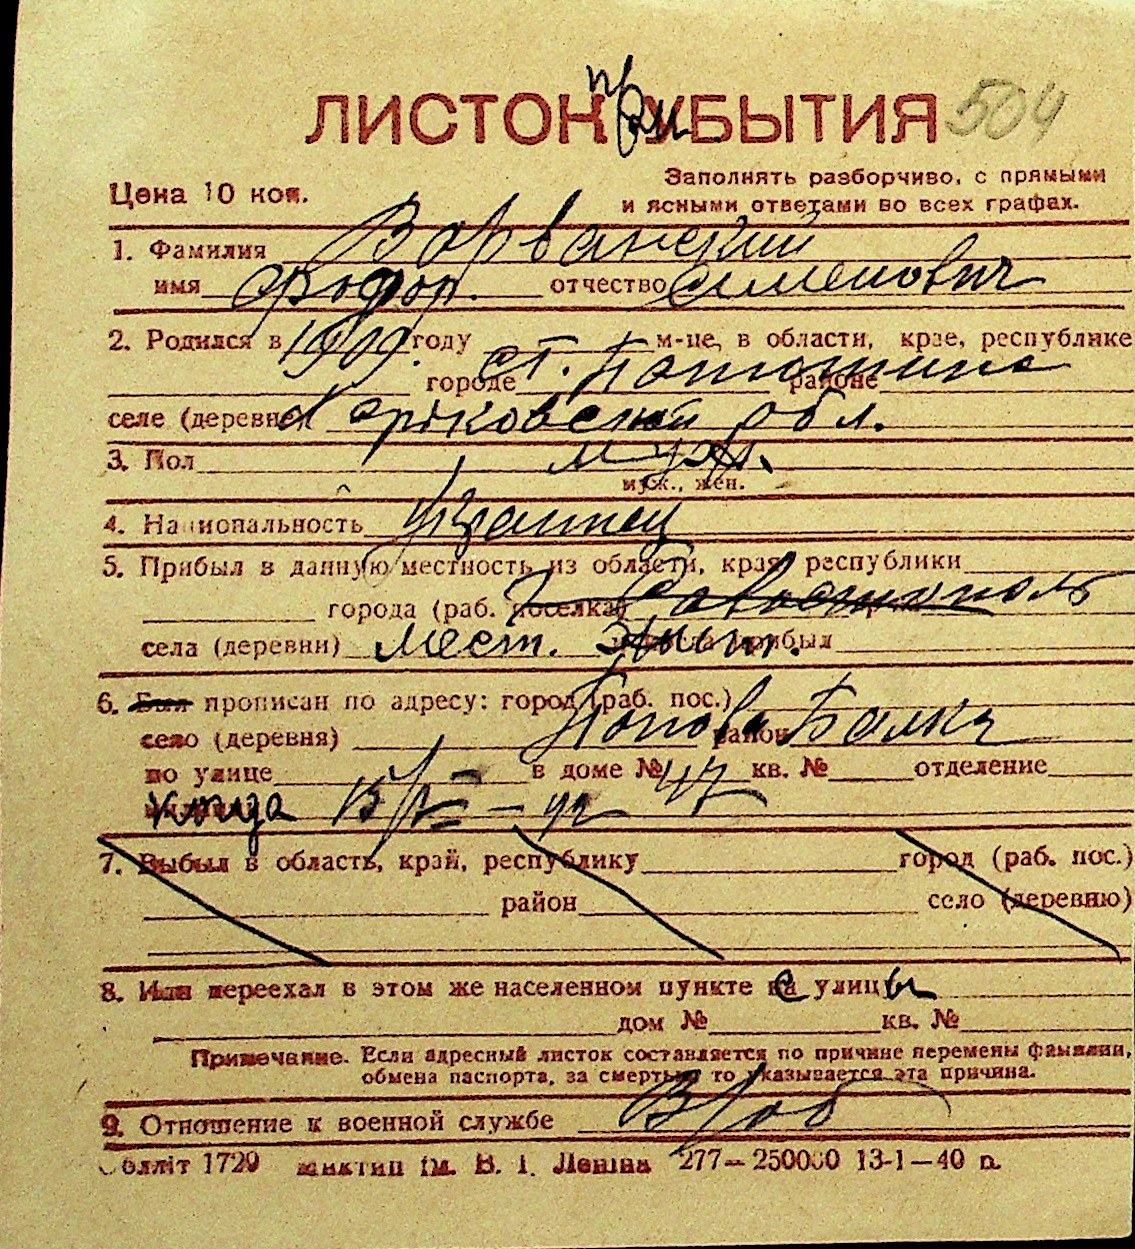 ЛИСТОК при УБЫТИЯ 504
Цена 10 коп.
Заполнять разборчиво, с прямыми
и ясными ответами во всех графах.
1. Фамилия Ворванский
имя Фодор. отчество Семенович
2. Родился в 1909. году м-це, в области, крае, республике
городе ст. районе
селе (деревне) Харковской обл.
3. Пол муж.
муж., жен.
4. Национальность Украинец
5. Прибыл в данную местность из области, края, республики
города (раб. поселка) г. Савастополь
села (деревни) мест. жит. прибыл
6. Был прописан по адресу: город (раб. пос.)
село (деревня) Попова Балка район
по улице в доме № 47 кв. № отделение
когда 47
7. Выбыл в область, край, республику город (раб. пос.)
район село (деревню)
8. Или переехал в этом же населенном пункте с улицы
дом № кв. №
Примечание. Если адресный листок составляется по причине перемены фамилии,
обмена паспорта, за смертью то указывается эта причина.
9. Отношение к военной службе В/об
Обліт 1729 ім. В. І. Леніна 277—250000 13-1—40 р.